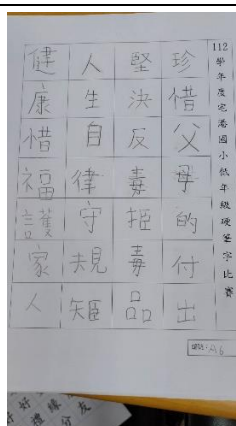 112學年度宅港國小低年級硬筆字比賽
珍惜父母的付出
堅決反毒拒毒品
人生自律守規矩
健康惜福護家人
編號：A6